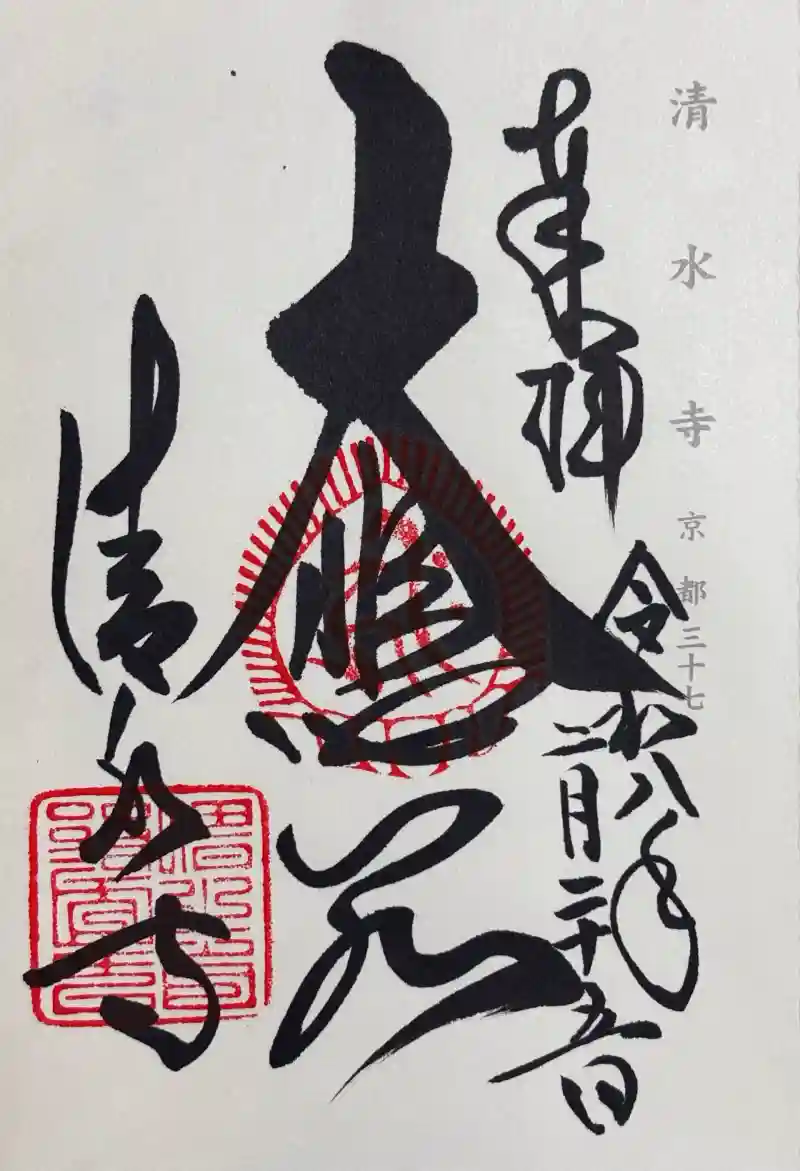 清水寺 京都三十七
奉拝
令和八年
二月二十五日
大悲閣
清水寺